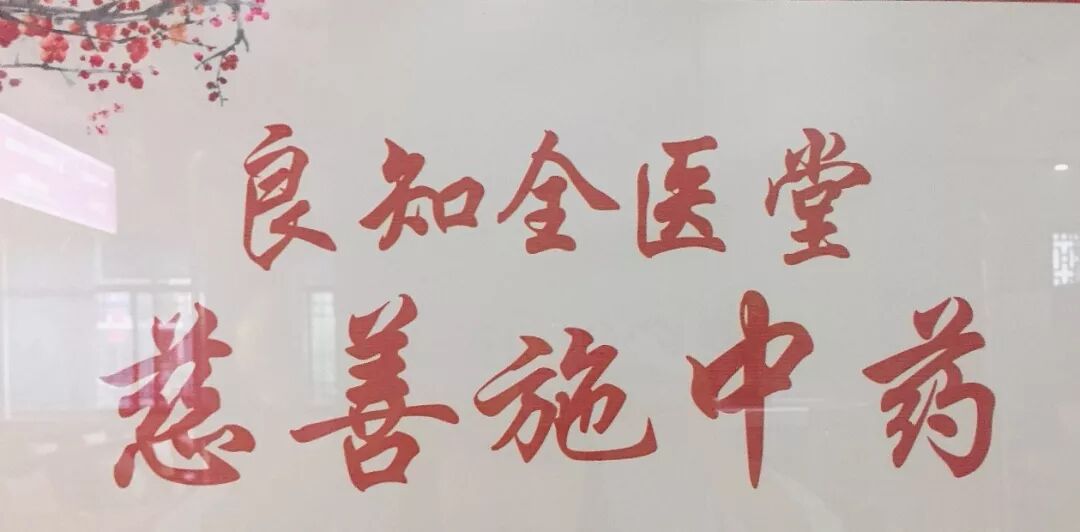 良知全医堂
慈善施中药